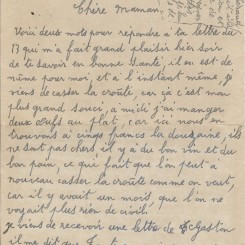 Chère Maman
Voici deux mots pour répondre à ta lettre du
13 qui m'a fait grand plaisir hier soir
de te savoir en bonne santé, il en est de
même pour moi, et à l'instant même, je
viens de casser la croûte, car çà c'est mon
plus grand souci, à midi j'ai manger
deux œufs au plat, car ici nous en
trouvons à cinq francs la douzaine, ils
ne sont pas chers il y à du bon vin et du
bon pain, ce qui fait que l'on peut à
nouveau casser la croûte comme on veut,
car il y avait un mois, que l'on ne
voyait plus rien de civil.
je viens de recevoir une lettre de Gaston
il me dit que